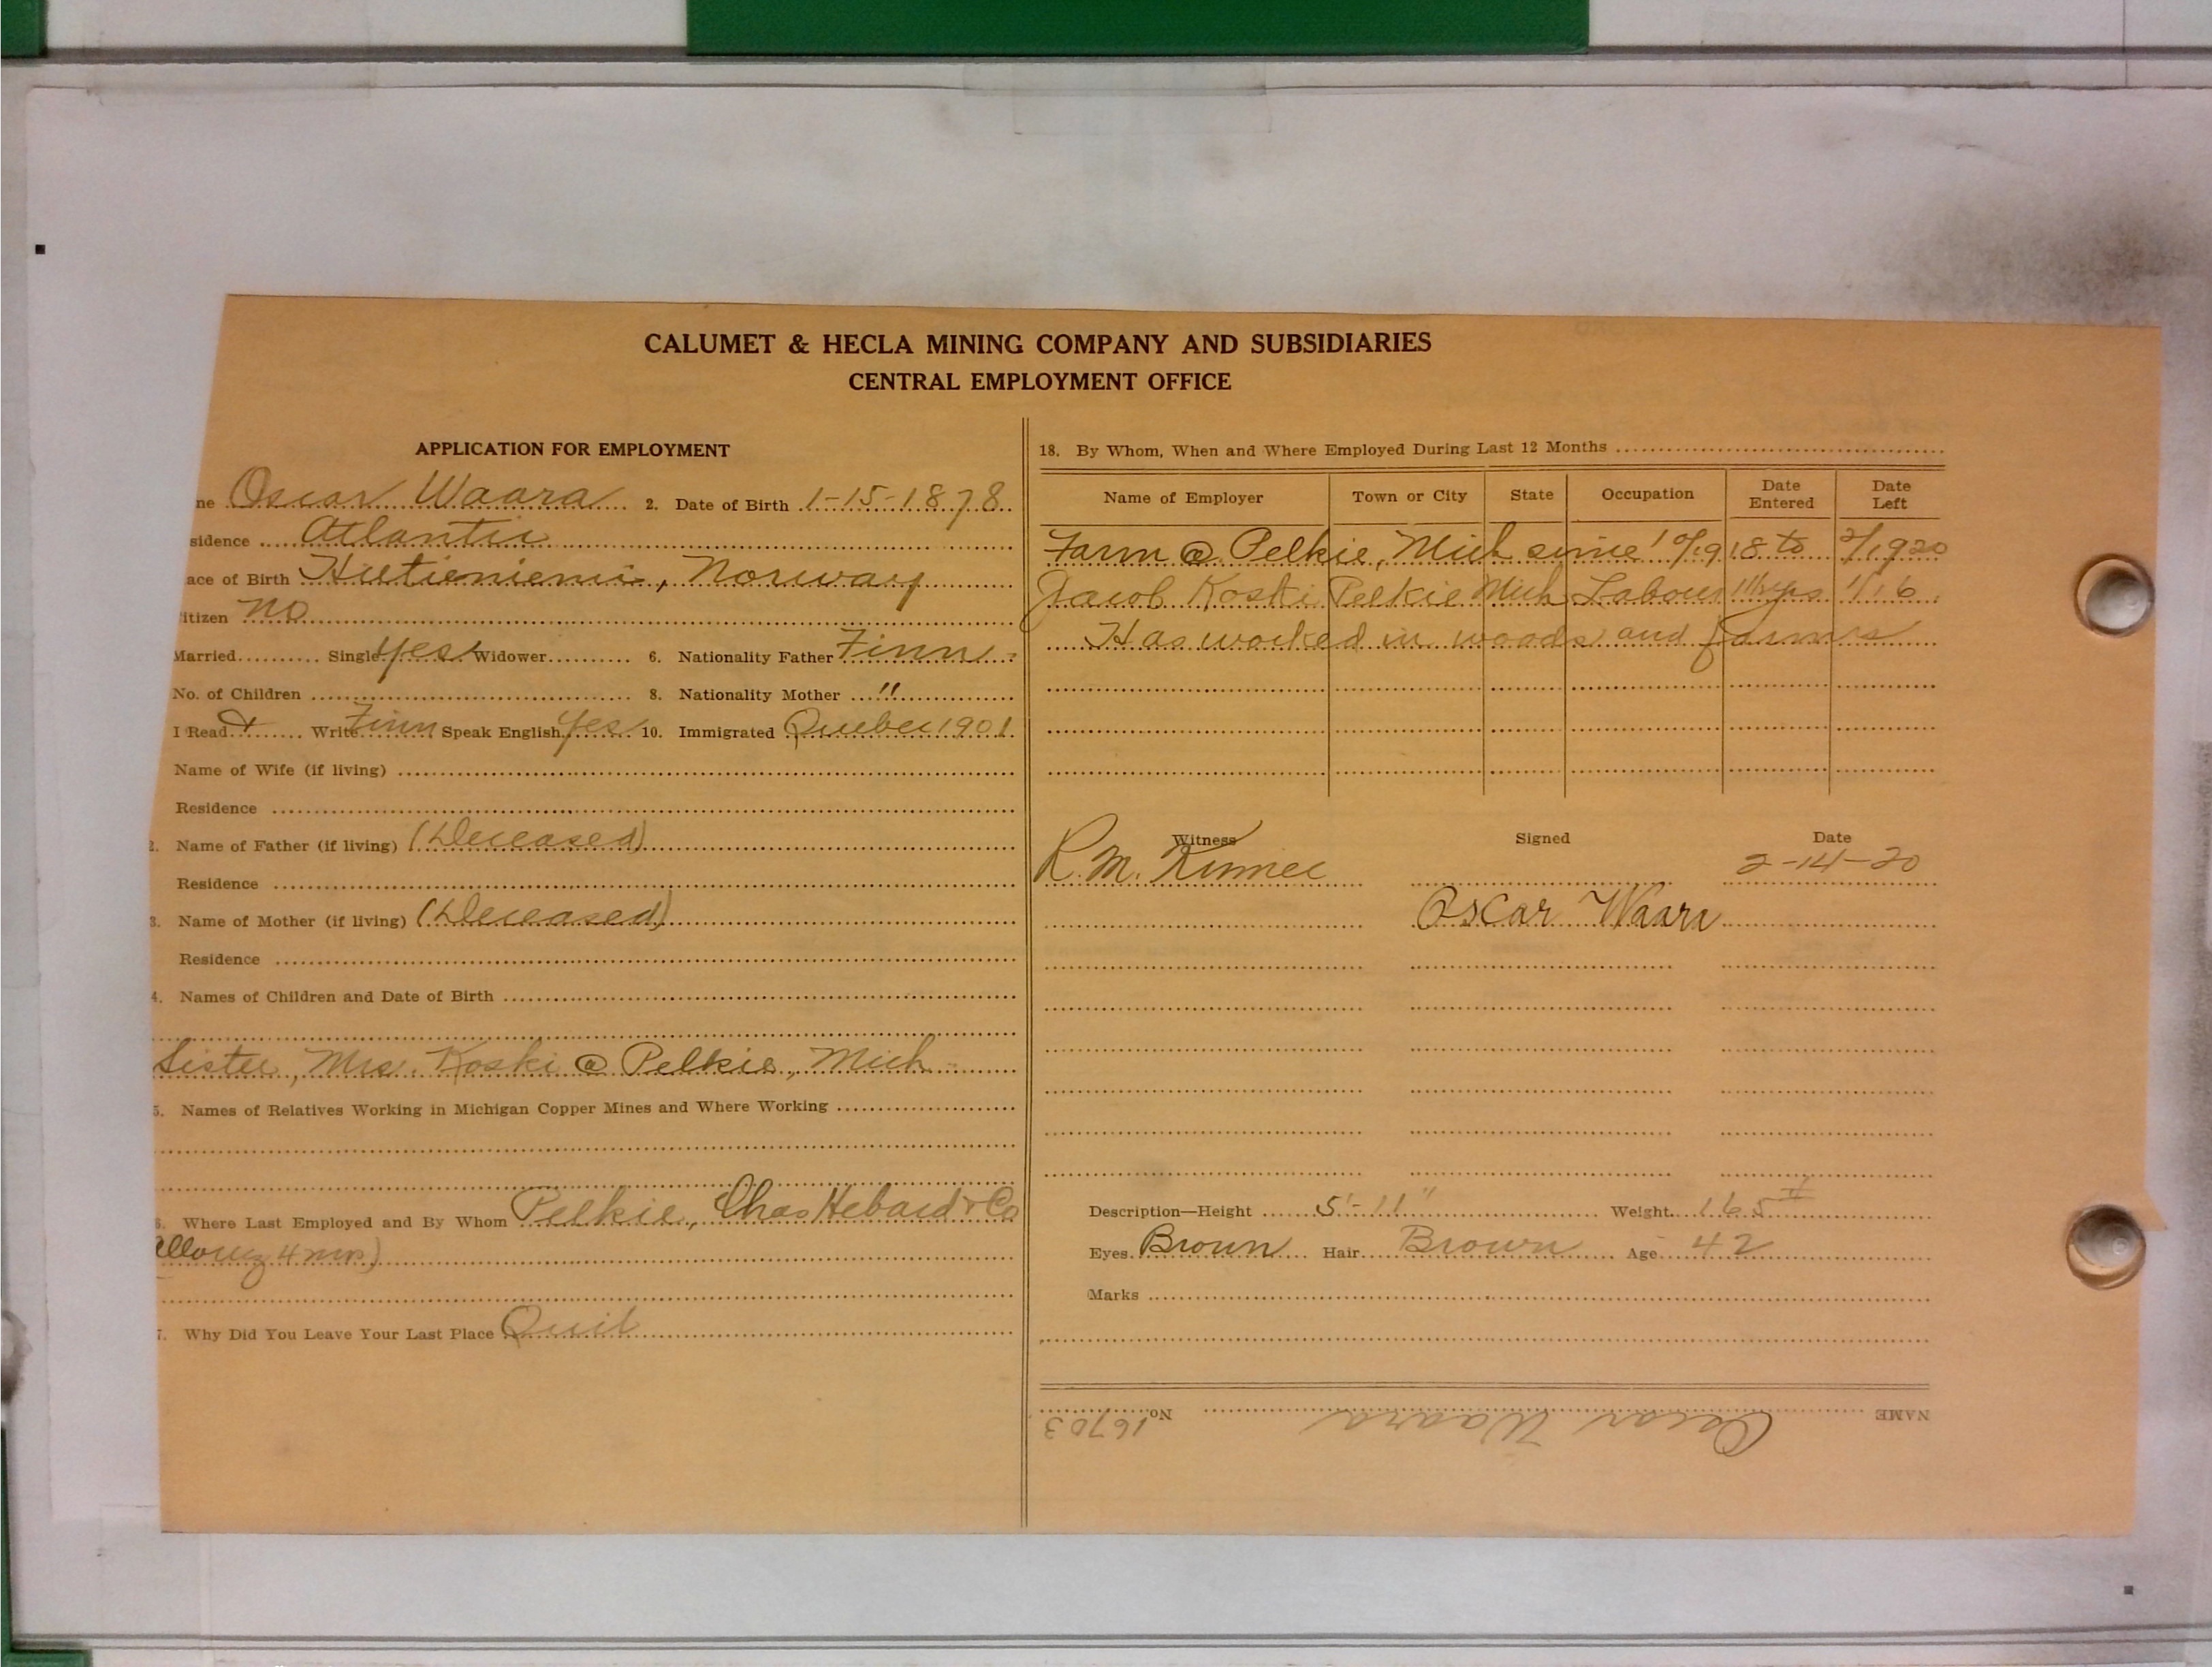 CALUMET & HECLA MINING COMPANY AND SUBSIDIARIES
CENTRAL EMPLOYMENT OFFICE
APPLICATION FOR EMPLOYMENT
ne Oscar Waara 2. Date of Birth 1-15-1878
sidence Atlantic
ace of Birth Hietieniemi, Norway
itizen No
Married Single Yes Widower 6. Nationality Father Finn
No. of Children 8. Nationality Mother "
I Read & Write Finn Speak English Yes 10. Immigrated Quebec 1901
Name of Wife (if living)
Residence
2. Name of Father (if living) (Deceased)
Residence
3. Name of Mother (if living) (Deceased)
Residence
4. Names of Children and Date of Birth
Sister, Mrs. Koski @ Pelkie, Mich
5. Names of Relatives Working in Michigan Copper Mines and Where Working
6. Where Last Employed and By Whom Pelkie, Chas Hebard & Co
4 mos)
7. Why Did You Leave Your Last Place Quit
18. By Whom, When and Where Employed During Last 12 Months
Name of Employer Town or City State Occupation Date Entered Date Left
Farm @ Pelkie, Mich since 10/1918 to 2/1920
Jacob Koski Pelkie Mich Labour yrs 1/16
Has worked in woods and farms
Witness Signed Date
R. M. 2-14-20
Oscar Waara
Description—Height 5'-11" Weight 165#
Eyes Brown Hair Brown Age 42
Marks
NAME Oscar Waara No. 16703